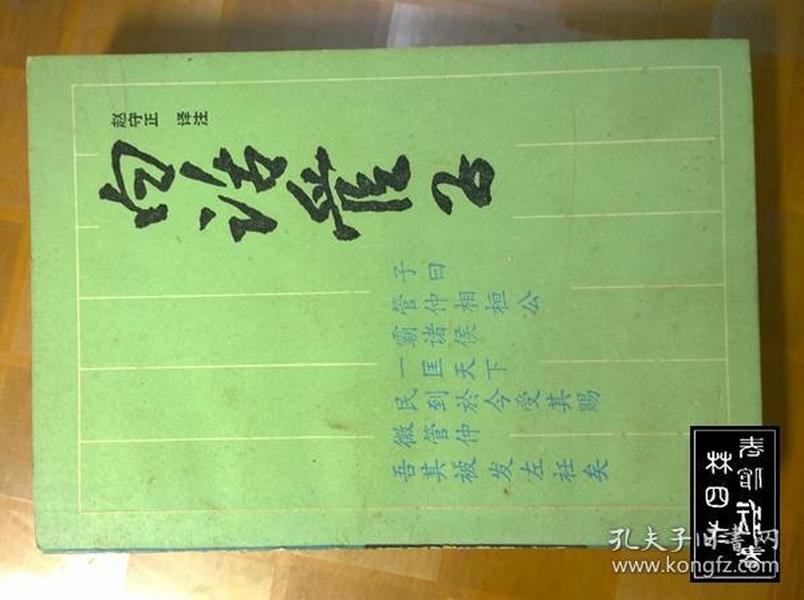 赵守正 译注
白话管子
子曰
管仲相桓公
霸诸侯
一匡天下
民到於今受其赐
微管仲
吾其被发左衽矣
孔夫子旧书网
www.kongfz.com